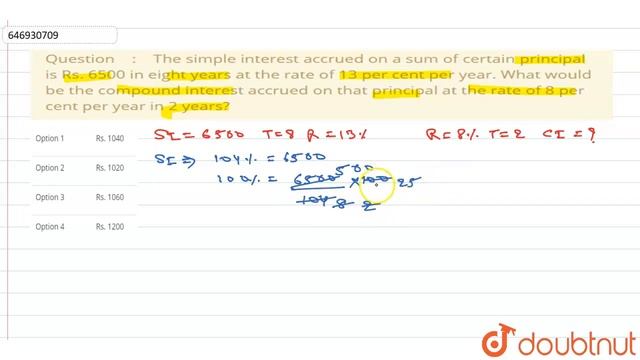 646930709
Question : The simple interest accrued on a sum of certain principal
is Rs. 6500 in eight years at the rate of 13 per cent per year. What would
be the compound interest accrued on that principal at the rate of 8 per
cent per year in 2 years?
Option 1 Rs. 1040
Option 2 Rs. 1020
Option 3 Rs. 1060
Option 4 Rs. 1200
SI = 6500 T=8 R=13% R=8% T=2 CI = ?
SI ⇒ 104% = 6500
500
100% = 6500 × 100 25
104 8 2
doubtnut